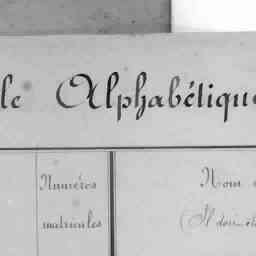 le Alphabétique
Numéros Nom
matricules (Il doit